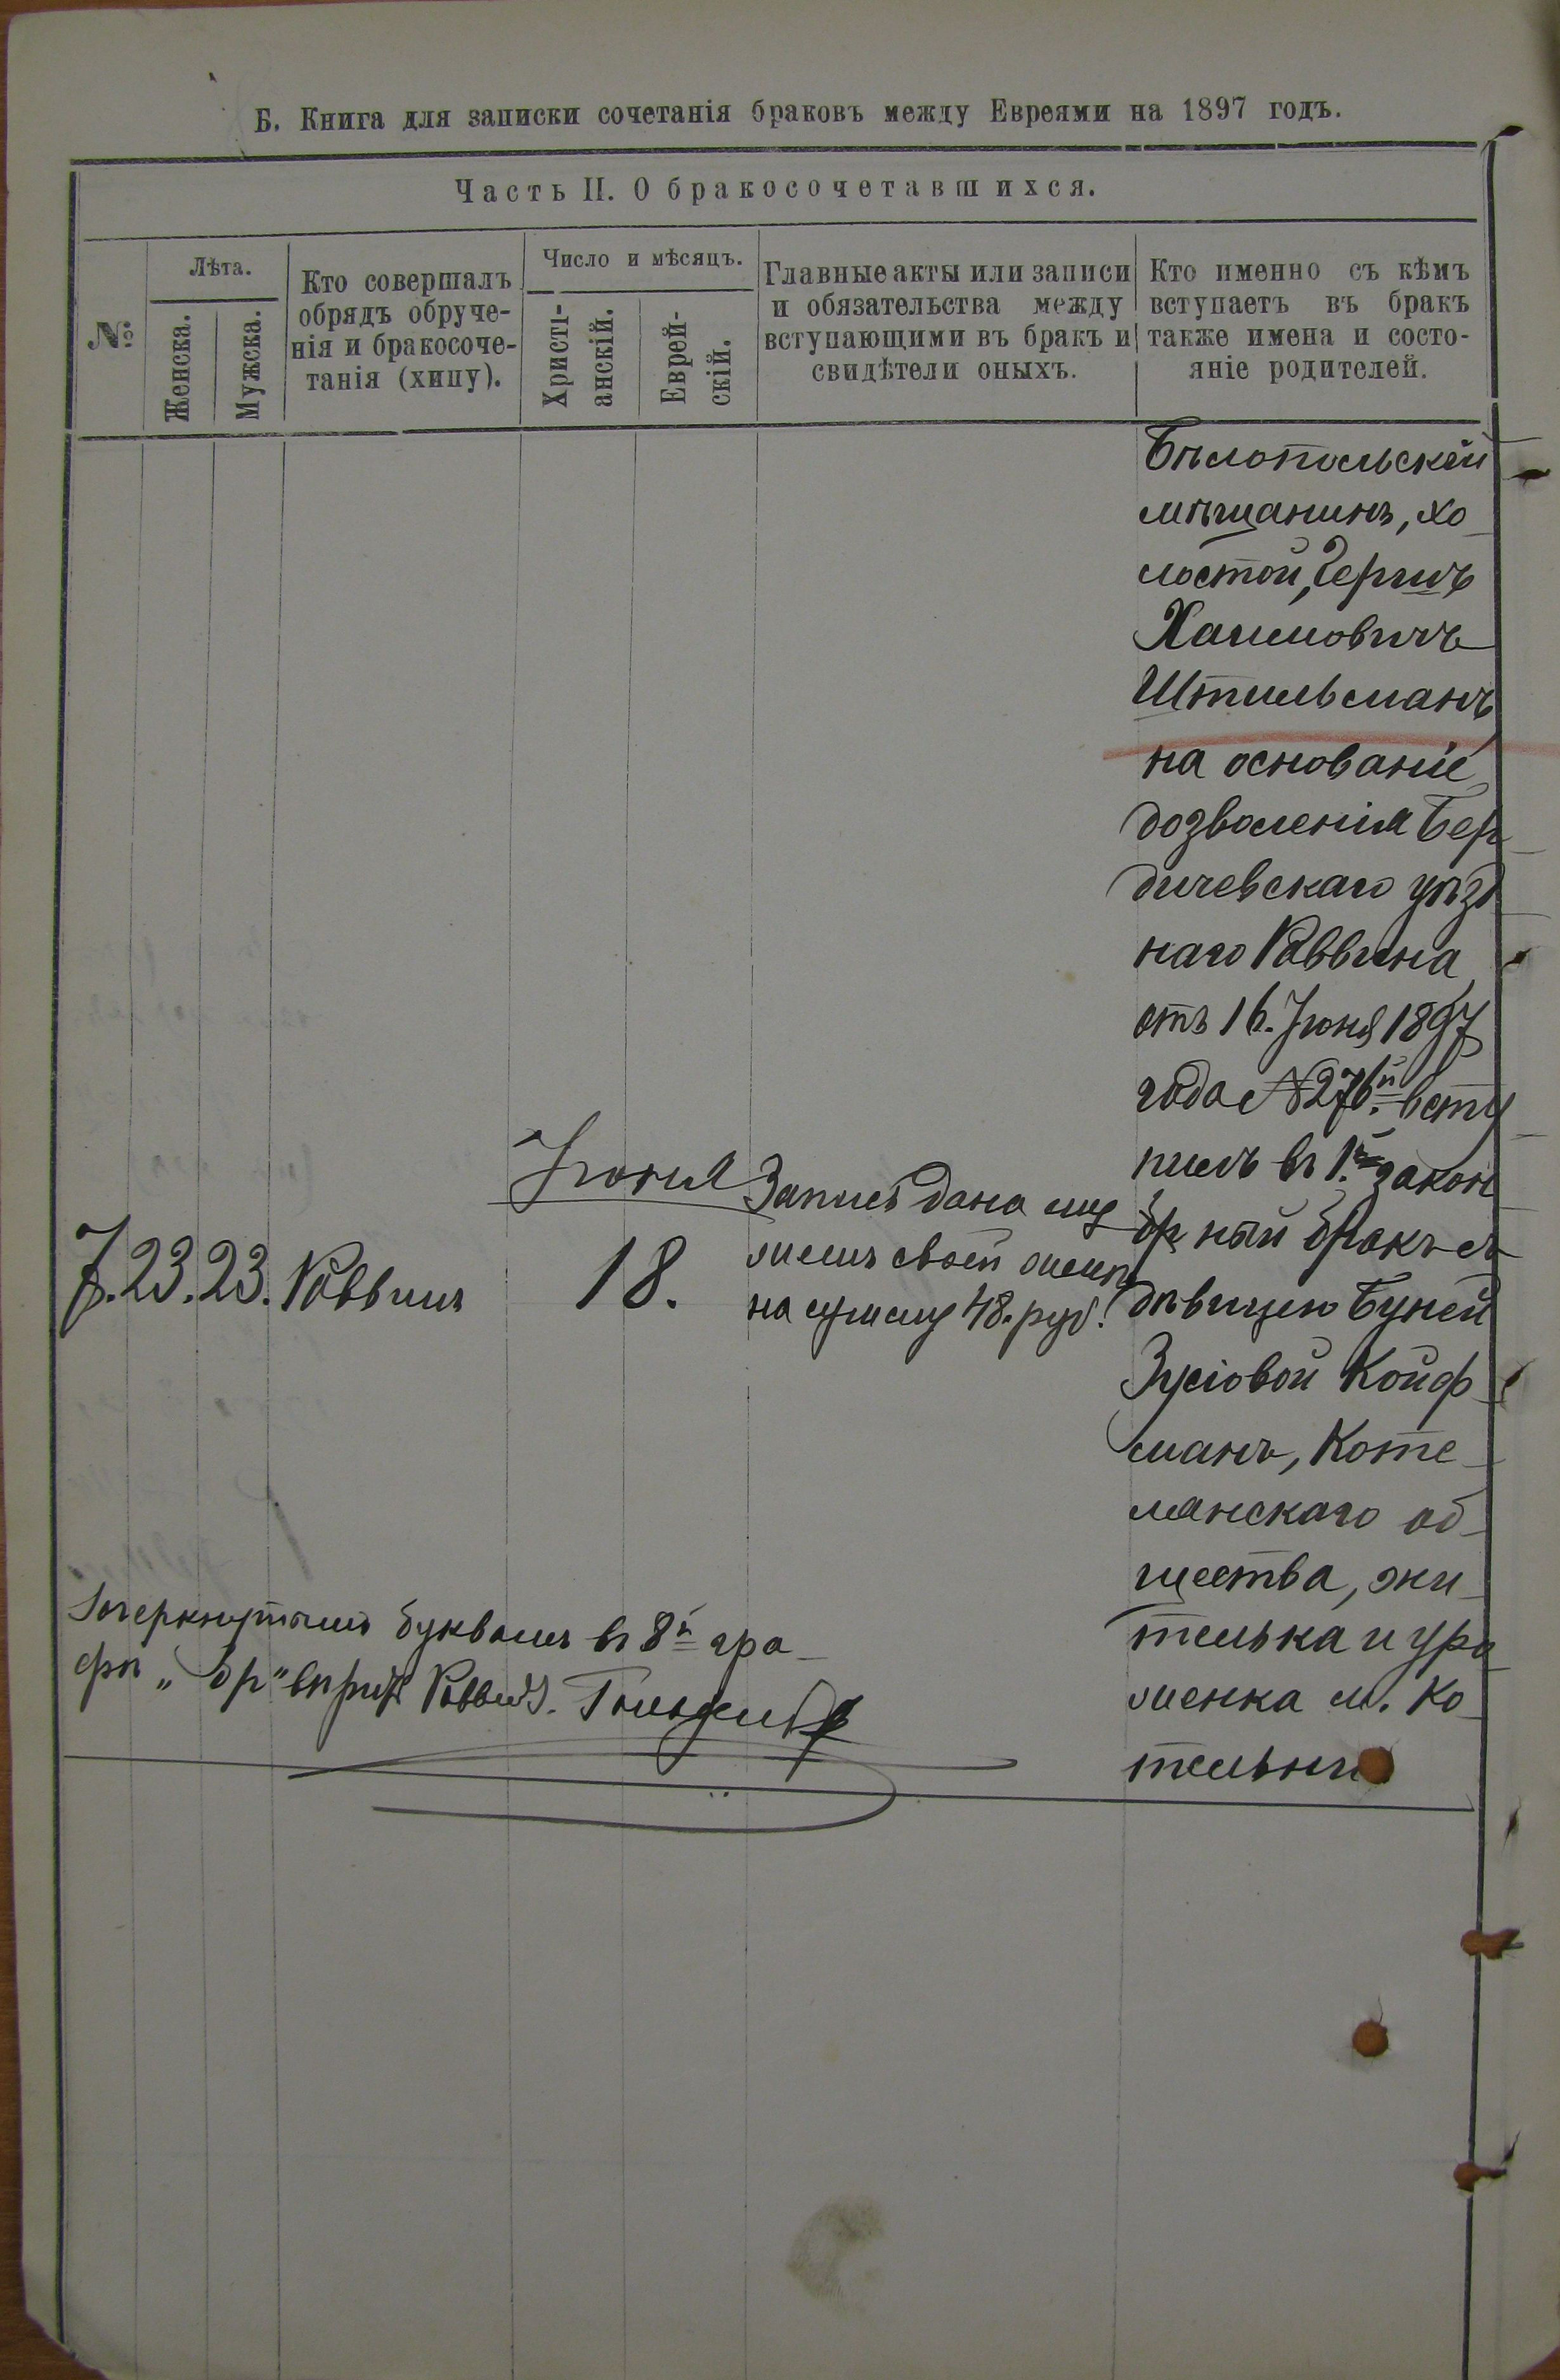 Б. Книга для записки сочетанія браковъ между Евреями на 1897 годъ.
Часть II. О бракосочетавшихся.
№
Лѣта.
Женска.
Мужска.
Кто совершалъ
обрядъ обруче-
нія и бракосоче-
танія (хипу).
Число и мѣсяцъ.
Христі-
анскій.
Еврей-
скій.
Главные акты или записи
и обязательства между
вступающими въ бракъ и
свидѣтели оныхъ.
Кто именно съ кѣмъ
вступаетъ въ бракъ
также имена и состо-
яніе родителей.
7. 23. 23. Раввинъ
Іюня
18.
Запись дана му
жемъ своей женѣ
на сумму 48. руб.
Бѣлопольскій
мѣщанинъ, хо
лостой, Гершъ
Хаимовичъ
Штильманъ
на основаніе
дозволенія Бер
дичевскаго уѣзд
наго Раввина
отъ 16. Іюня 1897
года № 276й всту
пилъ въ 1й закон
бр ный бракъ съ
дѣвицею Буней
Зусіовой Койф
манъ, Коте
лянскаго об
щества, жи
телька и уро
женка м. Ко
тельни
Зачеркнутымъ буквамъ въ 8й гра
фѣ „бр" вѣрить Раввинъ.